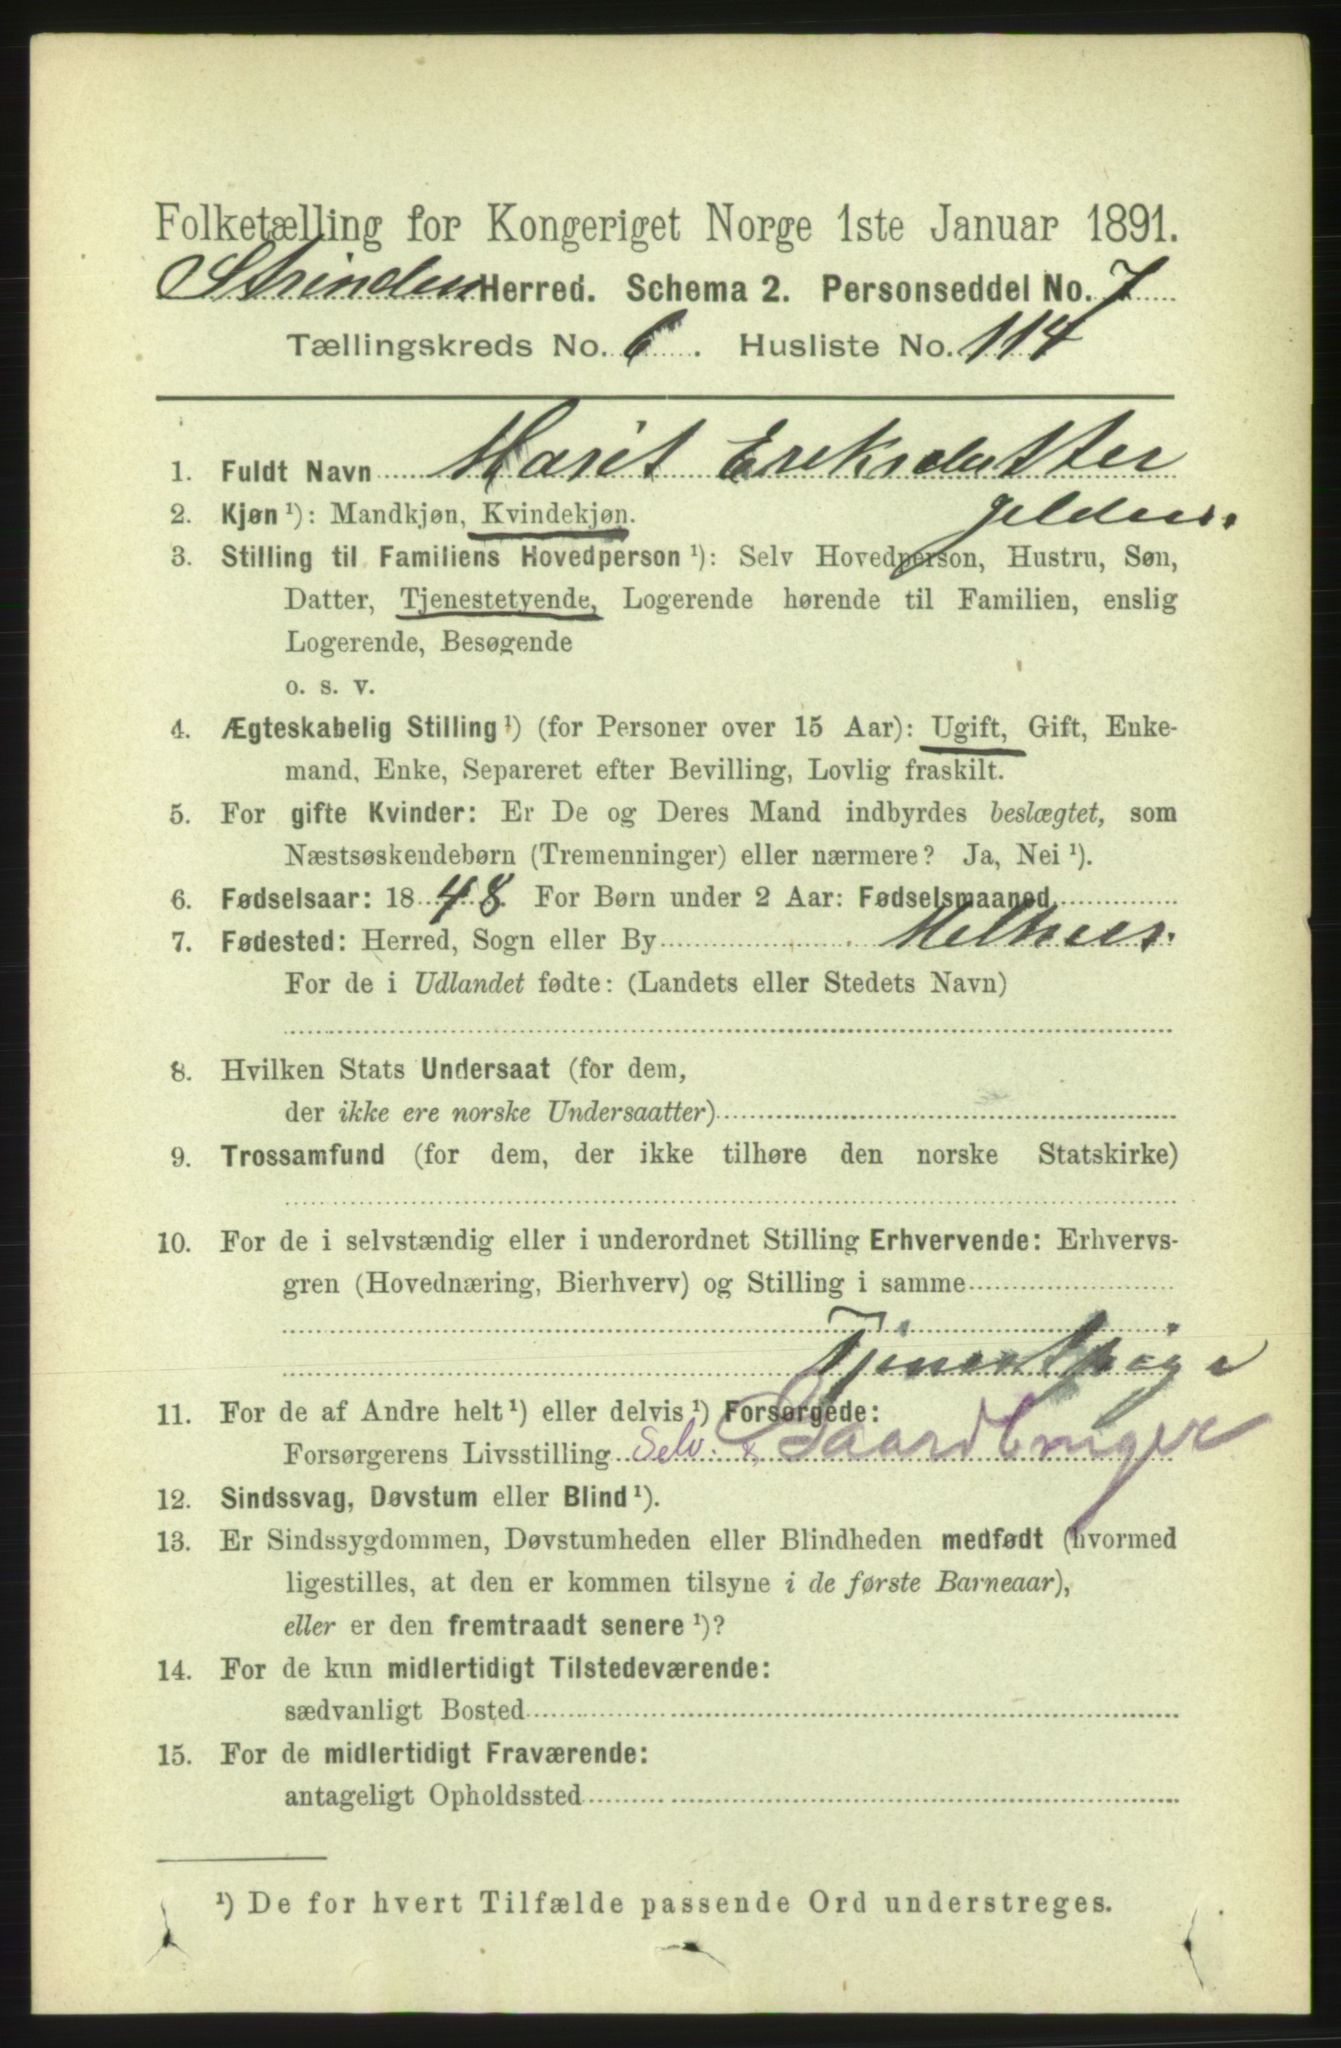 Folketælling for Kongeriget Norge 1ste Januar 1891.
Strinden Herred. Schema 2. Personseddel No. 7
Tællingskreds No. 6. Husliste No. 114
1. Fuldt Navn Marit Eriksdatter
2. Kjøn ¹): Mandkjøn, Kvindekjøn.
3. Stilling til Familiens Hovedperson ¹): Selv Hovedperson, Hustru, Søn,
Datter, Tjenestetyende, Logerende hørende til Familien, enslig
Logerende, Besøgende
o. s. v.
4. Ægteskabelig Stilling ¹) (for Personer over 15 Aar): Ugift, Gift, Enke-
mand, Enke, Separeret efter Bevilling, Lovlig fraskilt.
5. For gifte Kvinder: Er De og Deres Mand indbyrdes beslægtet, som
Næstsøskendebørn (Tremenninger) eller nærmere? Ja, Nei ¹).
6. Fødselsaar: 1848. For Børn under 2 Aar: Fødselsmaaned
7. Fødested: Herred, Sogn eller By Melhus.
For de i Udlandet fødte: (Landets eller Stedets Navn)
8. Hvilken Stats Undersaat (for dem,
der ikke ere norske Undersaatter)
9. Trossamfund (for dem, der ikke tilhøre den norske Statskirke)
10. For de i selvstændig eller i underordnet Stilling Erhvervende: Erhvervs-
gren (Hovednæring, Bierhverv) og Stilling i samme
Tjenestpige
11. For de af Andre helt ¹) eller delvis ¹) Forsørgede:
Forsørgerens Livsstilling Selv. Gaardbruger
12. Sindssvag, Døvstum eller Blind ¹).
13. Er Sindssygdommen, Døvstumheden eller Blindheden medfødt (hvormed
ligestilles, at den er kommen tilsyne i de første Barneaar),
eller er den fremtraadt senere ¹)?
14. For de kun midlertidigt Tilstedeværende:
sædvanligt Bosted
15. For de midlertidigt Fraværende:
antageligt Opholdssted
¹) De for hvert Tilfælde passende Ord understreges.